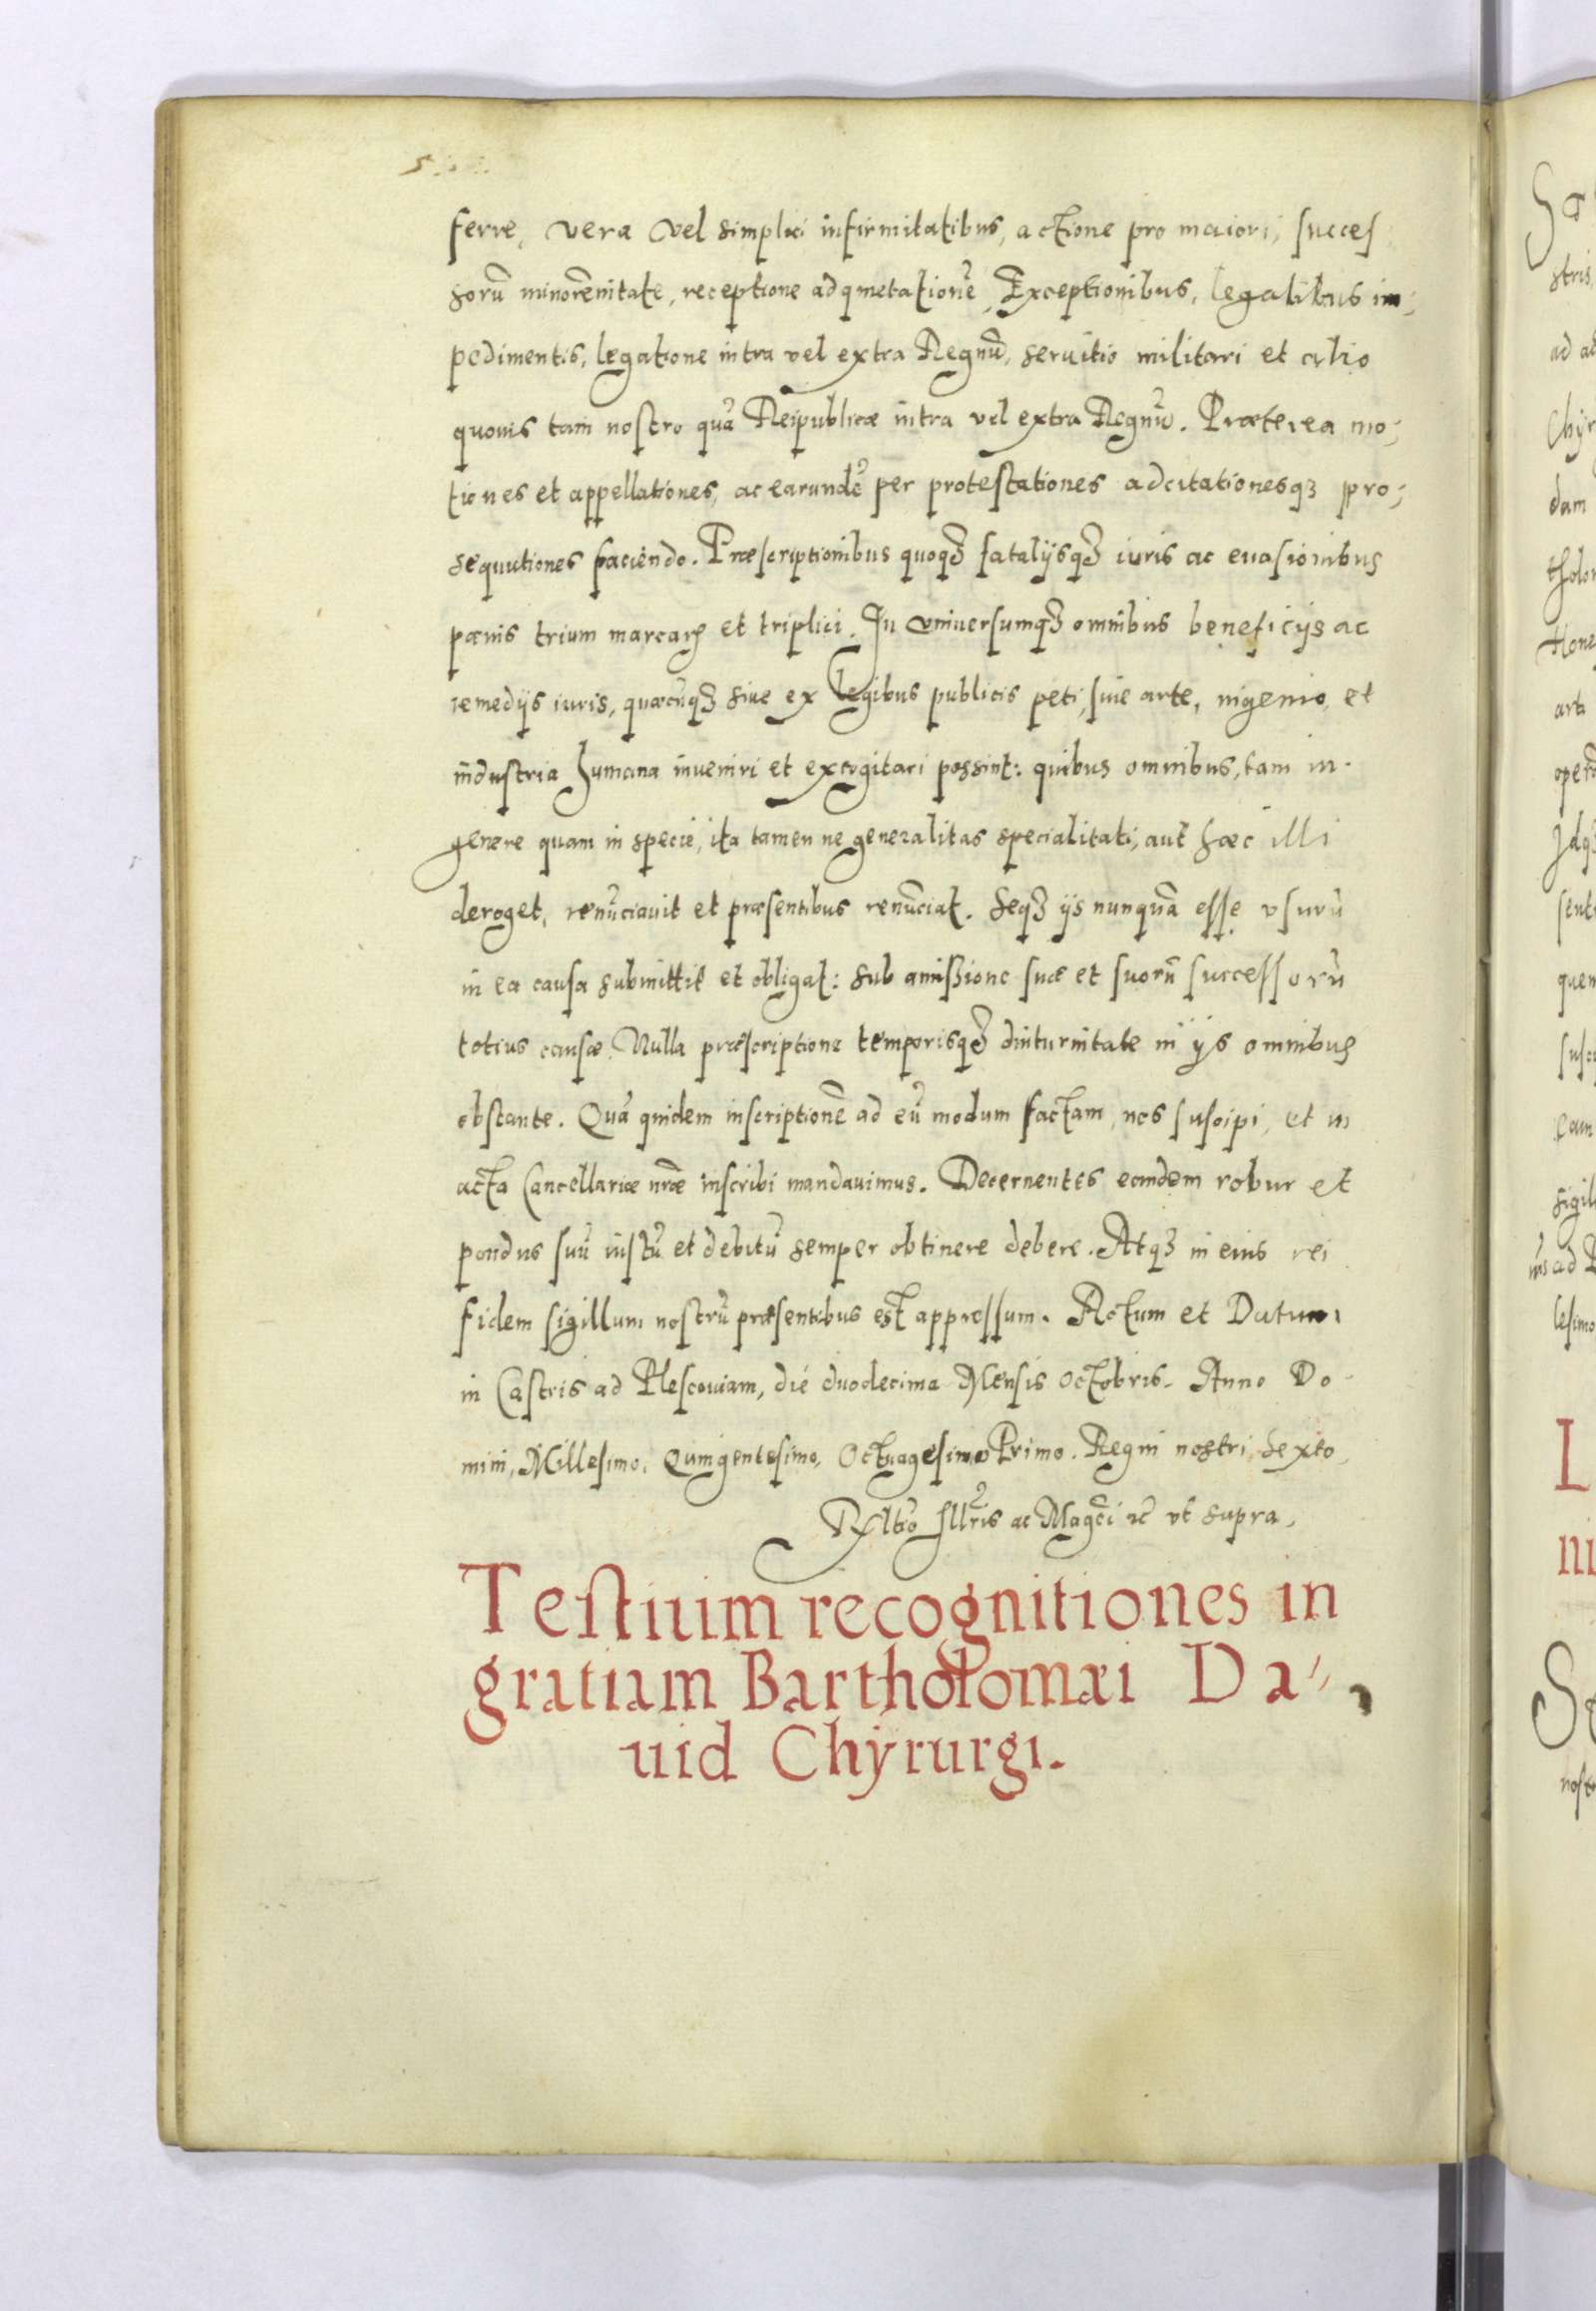 ferre, vera vel simplici infirmitatibus, actione pro maiori, succes
sorũ minorẽnitate, receptione ad qmetationẽ, Exceptionibus, legalibus im,
pedimentis, legatione intra vel extra Regnũ, seruitio militari et alio
quouis tam nostro quã Reipublicæ intra vel extra Regnũ. Præterea mo,
tiones et appellationes, ac earundẽ per protestationes adcitationesqꝫ pro,
sequutiones faciendo. Præscriptionibus quoqꝫ fatalijsqꝫ iuris ac euasionibus
pænis trium marcarꝝ et triplici. In vniuersumqꝫ omnibus beneficijs ac
remedijs iuris, quæcũqꝫ siue ex legibus publicis peti, siue arte, ingenio et
industria humana inueniri et excogitari possint: quibus omnibus, tam in
genere quam in specie, ita tamen ne generalitas specialitati, aut hæc illi
deroget, renũciauit et præsentibus renũciat. Seqꝫ ijs nunquã esse vsurũ
in ea causa submittit et obligat: sub amissione suæ et suorũ successorũ
totius causæ. Nulla præscriptione temporisqꝫ diuturnitate in ijs omnibus
obstante. Quã quidem inscriptionẽ ad eũ modum factam, nos suscipi, et in
acta Cancellariæ nr̃æ inscribi mandauimus. Decernentes eandem robur et
pondus suũ iustũ et debitũ semper obtinere debere. Atqꝫ in eius rei
fidem sigillum nostrũ præsentibus est appressum. Actum et Datum
in Castris ad Plescouiam, die duodecima Mensis Octobris. Anno Do
mini, Millesimo, Quingentesimo, Octuagesimo Primo. Regni nostri, sexto,
Rl̃tio Illr̃is ac Magc̃i ꝛc̃ vt supra,
Testium recognitiones in
gratiam Bartholomæi Da,,
uid Chÿrurgi.